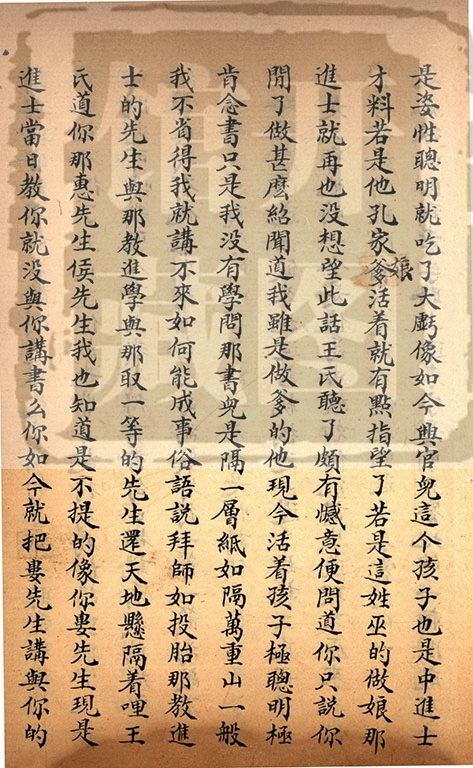 是姿性聰明就吃了大虧像如今興官兒這个孩子也是中進士
才料若是他孔家爹娘活着就有點指望了若是這姓巫的做娘那
進士就再也没想望此話王氏聽了頗有憾意便問道你只說你
閒了做甚麽紹聞道我雖是做爹的他現今活着孩子極聰明極
肯念書只是我没有學問那書兒是隔一層紙如隔萬重山一般
我不省得我就講不來如何能成事俗語說拜師如投胎那教進
士的先生與那教進學與那取一等的先生還天地懸隔着哩王
氏道你那惠先生侯先生我也知道是不提的像你婁先生現是
進士當日教你就没與你講書么你如今就把婁先生講與你的